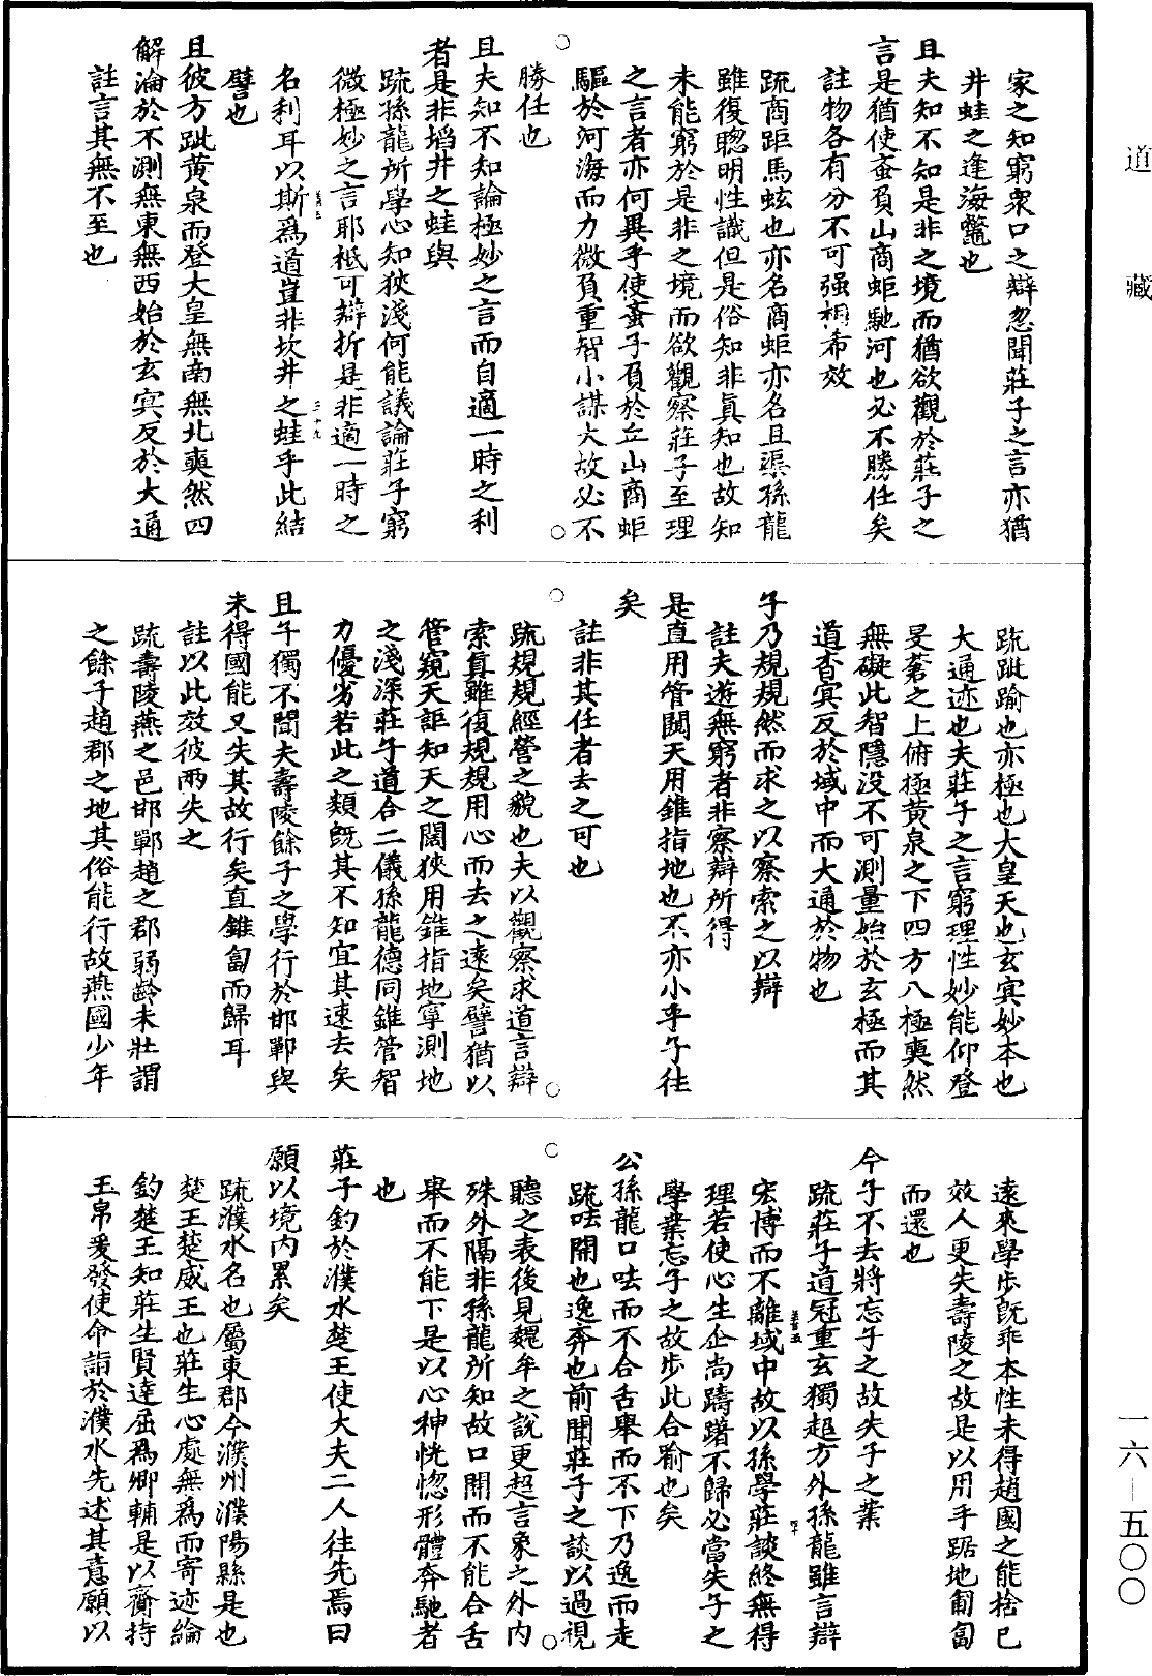 道藏
家之知窮衆口之辯忽聞莊子之言亦猶
井蛙之逢海鼈也
且夫知不知是非之境而猶欲觀於莊子之
言是猶使蚉負山商蚷馳河也必不勝任矣
註物各有分不可强相希效
疏商距馬蚿也亦名商蚷亦名且渠孫龍
雖復聰明性識但是俗知非真知也故知
未能窮於是非之境而欲觀察莊子至理
之言者亦何異乎使蚉子負於丘山商蚷
驅於河海而力微負重智小謀大故必不
勝任也
且夫知不知論極妙之言而自適一時之利
者是非埳井之蛙與
疏孫龍所學心知狹淺何能議論莊子窮
微極妙之言耶秪可辯折是非適一時之
名利耳以斯爲道豈非坎井之蛙乎此結
譬也
且彼方跐黄泉而登大皇無南無北奭然四
解淪於不測無東無西始於玄冥反於大通
註言其無不至也
疏跐踰也亦極也大皇天也玄冥妙本也
大通迹也夫莊子之言窮理性妙能仰登
旻蒼之上俯極黄泉之下四方八極奭然
無礙此智隱没不可測量始於玄極而其
道杳冥反於域中而大通於物也
子乃規規然而求之以察索之以辯
註夫遊無窮者非察辯所得
是直用管闚天用錐指地也不亦小乎子往
矣
註非其任者去之可也
疏規規經營之貌也夫以觀察求道言辯
索真雖復規規用心而去之遠矣譬猶以
管窺天詎知天之闊狹用錐指地寧測地
之淺深莊子道合二儀孫龍德同錐管智
力優劣若此之類旣其不知宜其速去矣
且子獨不聞夫壽陵餘子之學行於邯鄲與
未得國能又失其故行矣直錐匐而歸耳
註以此效彼兩失之
疏壽陵燕之邑邯鄲趙之郡弱齡未壯謂
之餘子趙郡之地其俗能行故燕國少年
遠來學步旣乖本性未得趙國之能捨己
效人更失壽陵之故是以用手踞地匍匐
而還也
今子不去將忘子之故失子之業
疏莊子道冠重玄獨超方外孫龍雖言辯
宏博而不離域中故以孫學莊談終無得
理若使心生企尚躊躇不歸必當失子之
學業忘子之故步此合喻也矣
公孫龍口呿而不合舌舉而不下乃逸而走
疏呿開也逸奔也前聞莊子之談以過視
聽之表後見魏牟之說更超言象之外内
殊外隔非孫龍所知故口開而不能合舌
舉而不能下是以心神恍惚形體奔馳者
也
莊子釣於濮水楚王使大夫二人往先焉曰
願以境内累矣
疏濮水名也屬東郡今濮州濮陽縣是也
楚王楚威王也莊生心處無爲而寄迹綸
釣楚王知莊生賢達屈爲卿輔是以齎持
玉帛爰發使命詣於濮水先述其意願以
一六—五〇〇